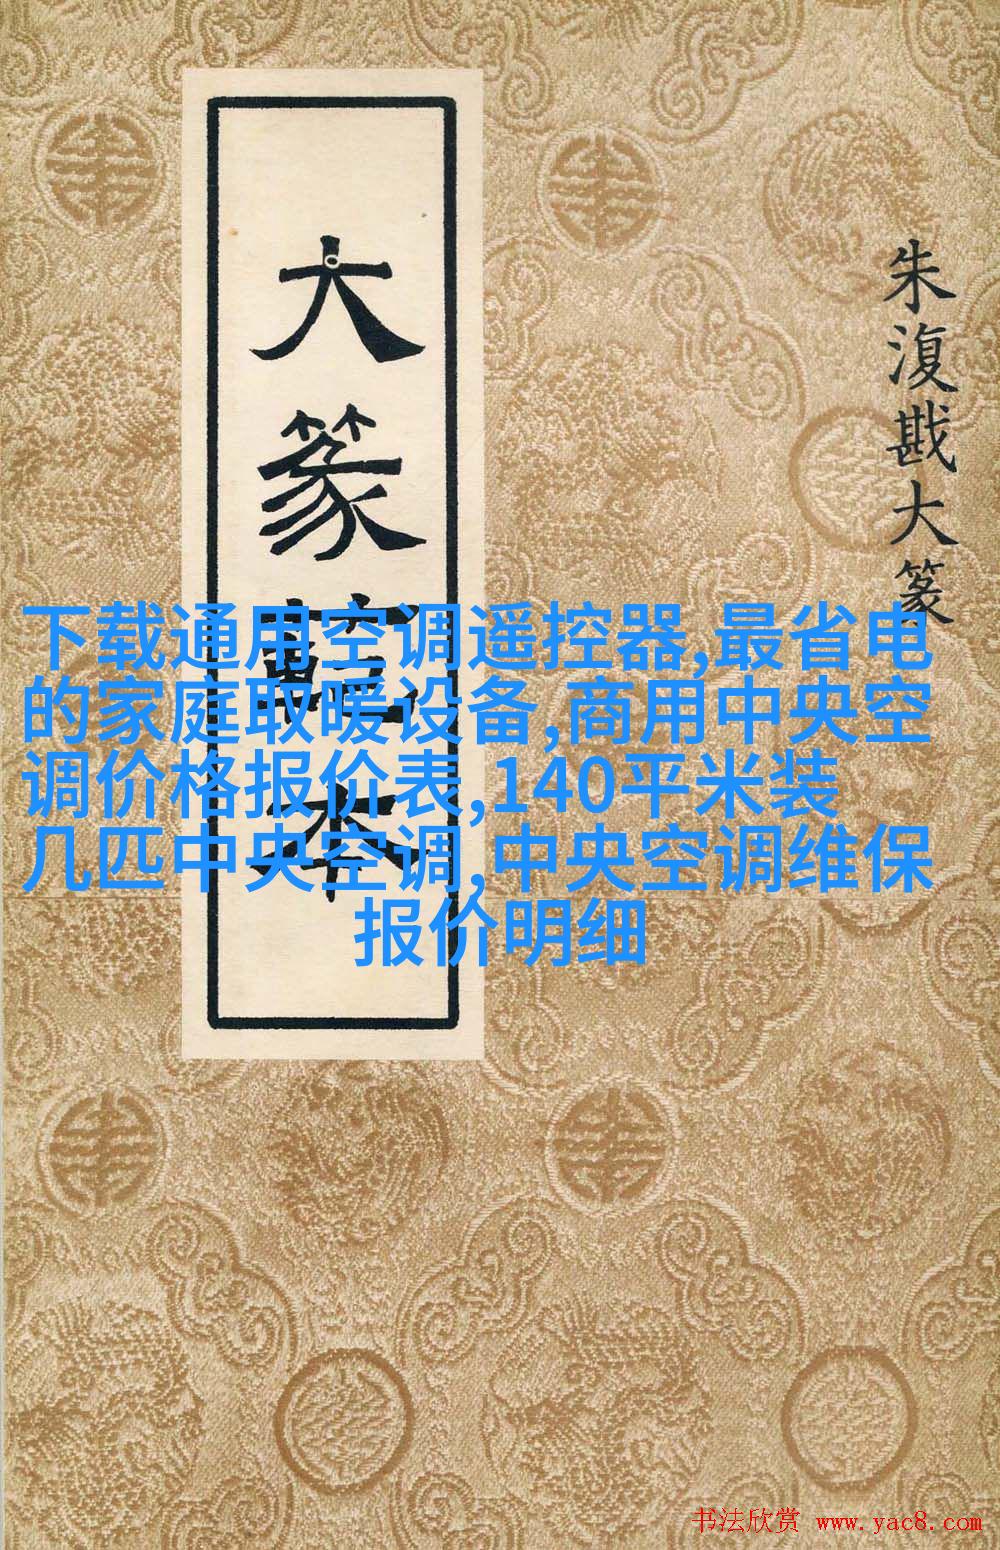 朱復戡大篆
大篆本
下载通用空调遥控器,最省电
的家庭取暖设备,商用中央空
调价格报价表,140平米装
几匹中央空调,中央空调维保
报价明细
书法欣赏 www.yac8.com